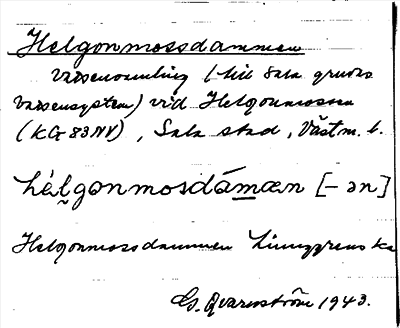 Helgonmossdammen
vattensamling (till Sala gruvas
vattensystem) vid Helgonmossen
(KG 83 NV), Sala stad, Västm. l.
hélgonmosdámæn [-ən]
Helgonmossdammen Ljunggrens ka
G. Qvarnström 1943.